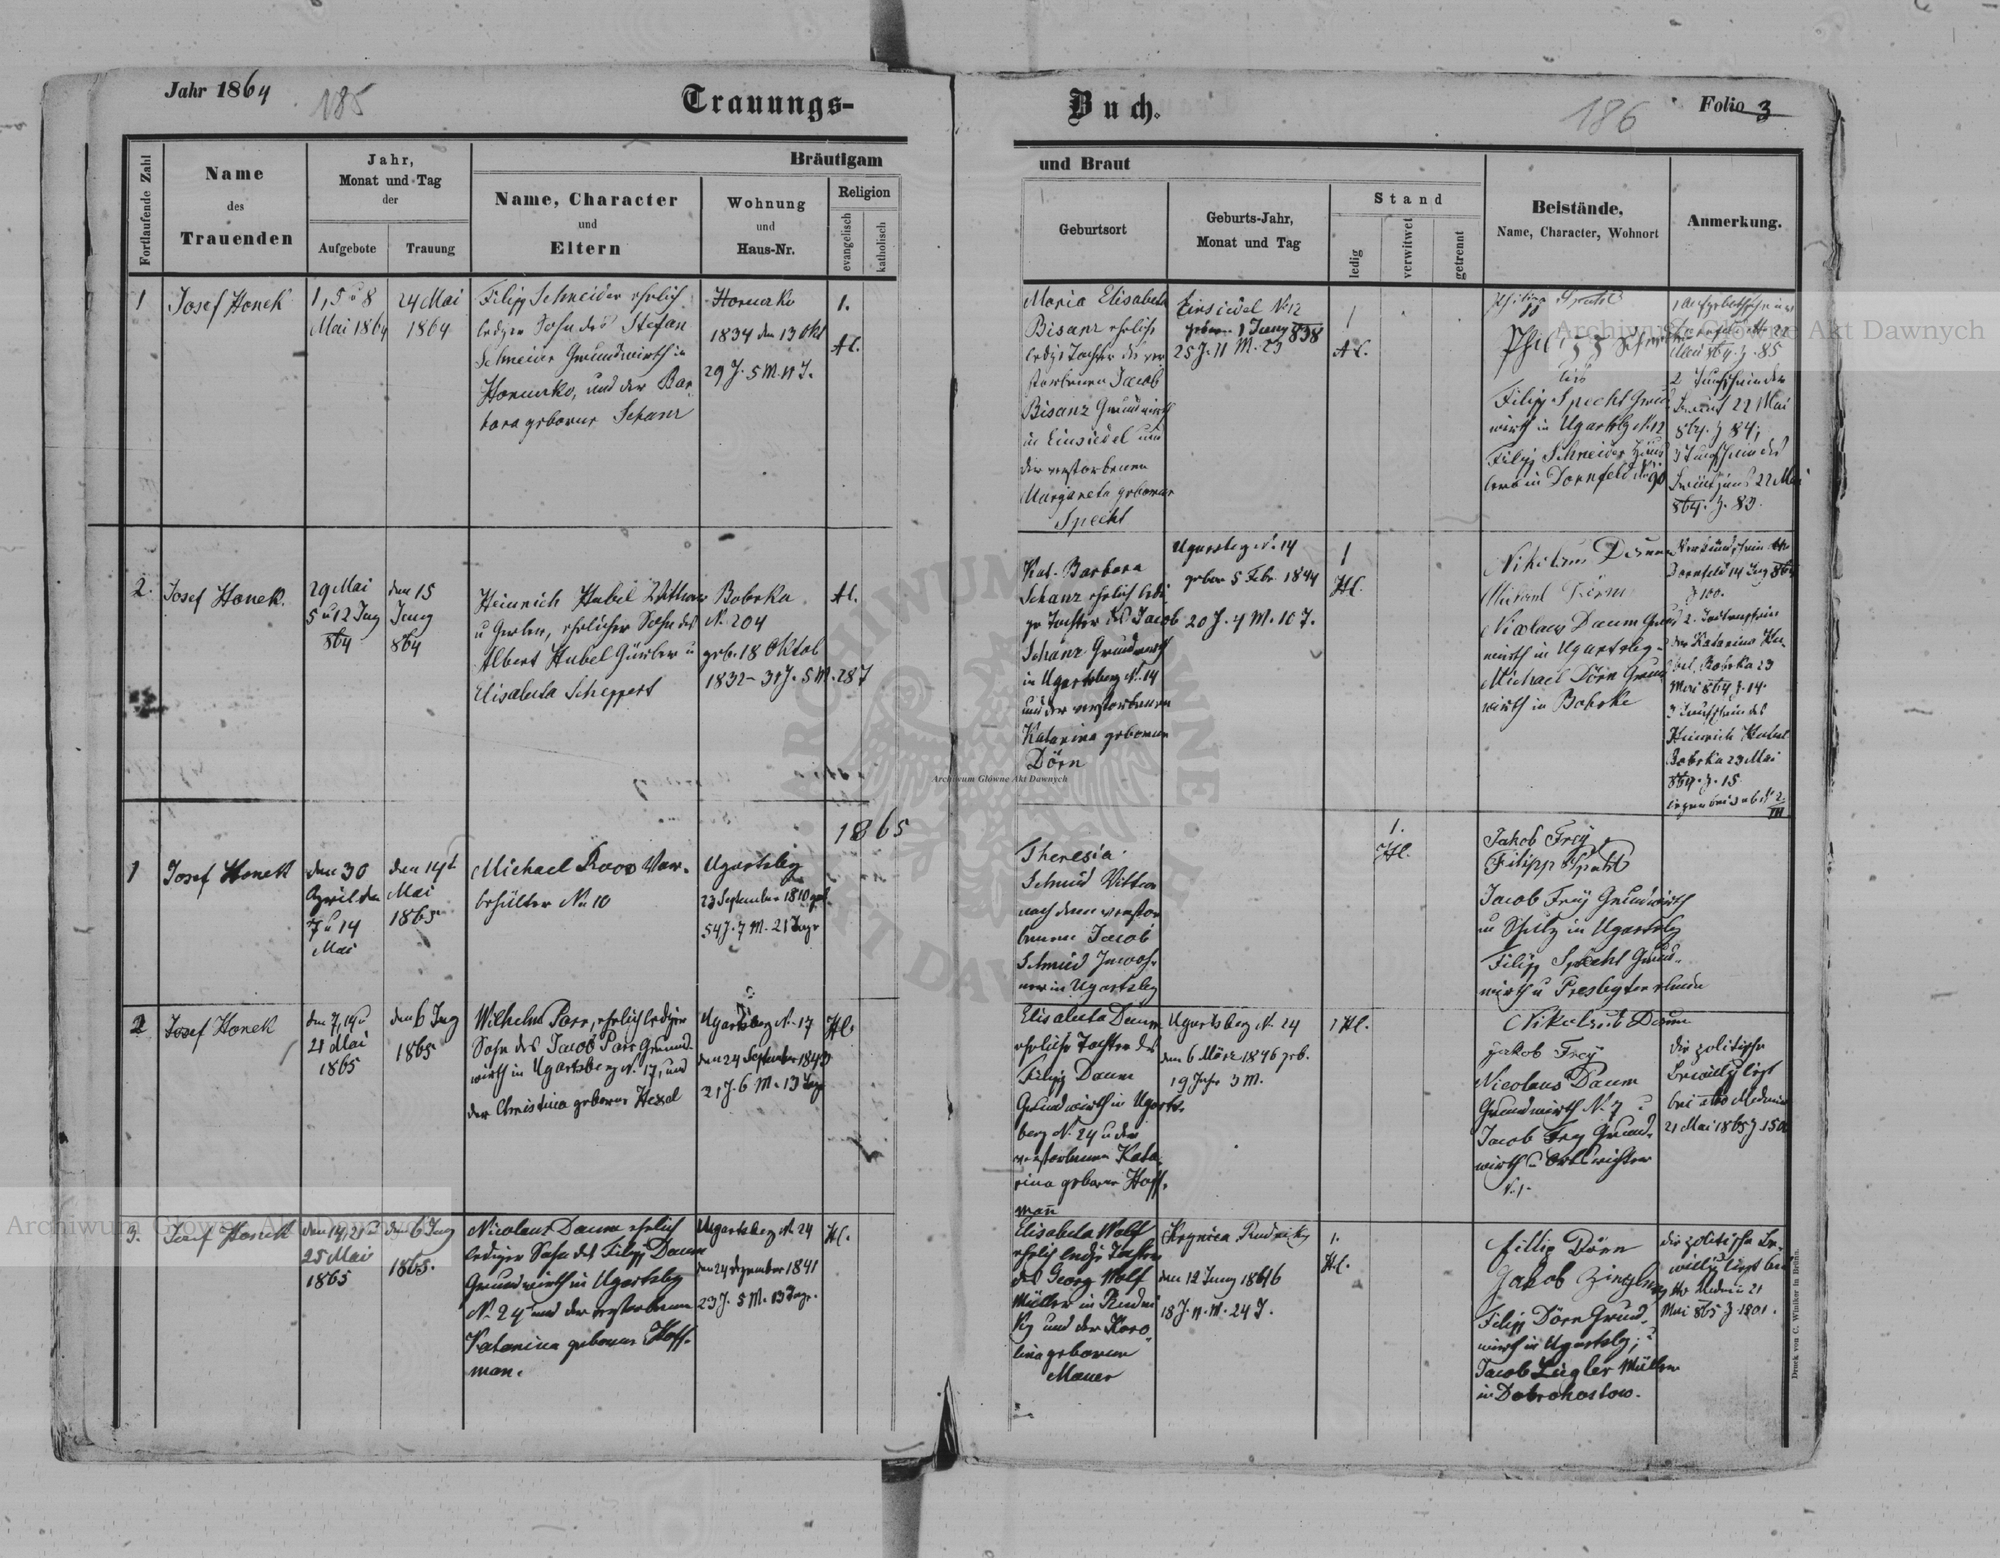 Jahr 1864
185
Trauungs-
Buch.
186
Folio 3
Fortlaufende Zahl
Name
des
Trauenden
Jahr,
Monat und Tag
der
Aufgebote
Trauung
Bräutigam
Name, Character
und
Eltern
Wohnung
und
Haus-Nr.
Religion
evangelisch
katholisch
und Braut
Geburtsort
Geburts-Jahr,
Monat und Tag
Stand
ledig
verwitwet
getrennt
Beistände,
Name, Character, Wohnort
Anmerkung.
1
Josef Honek
1, 5 u 8
Mai 1864
24 Mai
1864
Filipp Schneider ehrlich
lediger Sohn des Stefan
Schneider Grundwirth in
und der Bar-
bara geborne Schanz
1834 den 13 Okt
29 J. 5 M. 11 T.
1.
Maria Elisabeta
Bisanz ehrlich
ledige Tochter des ver
storbenen Jacob
Bisanz Grundwirth
in Einsiedel und
der verstorbenen
Margareta geborner
Specht
Einsiedel No 12
geboren 1 Juny 838
25 J. 11 M. 23
1
Filipp Specht Grund
wirth in Ugartsbg No 12
Filipp Schneider
in Dornfeld
22 Mai
864. z. 84;
22 Mai
864. z. 83.
2.
Josef Honek.
29 Mai
5 u 12 Juny
864
den 15
Juny
864
Heinrich Hubel Wittwer
u Gerber, ehrlicher Sohn des
Albert Hubel u
Elisabeta Scheppert
Bobrka
No 204
geb. 18 Oktob
1832 - 31 J. 5 M. 28 T
Kat. Barbara
Schanz ehrlich ledi
ge Tochter des Jacob
Schanz Grundwirth
in Ugartsberg No 14
und der verstorbenen
Katarina geborner
Dörn
Ugartsberg No 14
gebor 5 Febr 1844
20 J. 4 M. 10 T.
1
Nicolaus Daum Grund
wirth in Ugartsbeg -
Michael Dörn Grund
wirth in Bobrke
Dornfeld 14 Juny 864
z 100.
2. Todtenschein
der Katarina Hu-
bel Bobrka 23
Mai 864 z. 14.
3 Taufschein des
Heinrich Hubel
Bobrka 23 Mai
864. z. 15
1865
1
Josef Honek
den 30
April den
7 u 14
Mai
den 14t
Mai
1865
Michael Roos Vor-
behälter No 10
Ugartsbg
23 September 1810 geb.
54 J. 7 M. 21 Tage
Theresia
Schmid Wittwe
nach dem verstor
benen Jacob
Schmid Inwoh-
ner in Ugartsbg
1.
Jakob Frey
Filipp Specht
Jacob Frey Grundwirth
u Schulz in Ugartsbg
Filipp Specht Grund-
wirth u Presbyter
2
Josef Honek
den 7, 14 u
21 Mai
1865
den 6 Juny
1865
Wilhelm Parr, ehrlich lediger
Sohn des Jacob Parr Grund-
wirth in Ugartsberg No 17, und
der Christina geborne Hexel
Ugartsberg No 17
den 24 September 1843
21 J. 6 M. 13 Tage
Elisabeta Daum
ehrliche Tochter des
Filipp Daum
Grundwirth in Ugarts-
berg No 24 u der
verstorbenen Kata-
rina geborner Hoff-
man
Ugartsberg No 24
den 6 März 1846 geb.
19 Jahr 3 M.
Jakob Frey
Nicolaus Daum
Grundwirth No 7 u
Jacob Frey Grund-
wirth u Ortsrichter
No 1.
die politische
Bewillg liegt
bei
21 Mai 1865 z
3.
Josef Honek
den 14, 21 u
25 Mai
1865
den 6 Juny
1865.
Nicolaus Daum ehrlich
lediger Sohn des Filipp Daum
Grundwirth in Ugartsbg
No 24 und der verstorbenen
Katarina geborner Hoff-
man.
Ugartsberg No 24
den 24 Dezember 1841
23 J. 5 M. 13 Tage.
Elisabeta Wolf
ehrlich ledige Tochter
des Georg Wolf
Müller in Rudni
ky und der Karo-
lina geborner
Mauer
den 12 Juny 1846
18 J. 11 M. 24 T.
1.
Fillip Dörn
Filipp Dörn Grund-
wirth in Ugartsbg; u
Jacob Zingler Müller
in Dobrohostow.
die politische Be-
willg liegt bei
21
Mai 865 z 1801.
Druck von C. Winiker in Brünn.
Archiwum Główne Akt Dawnych
Archiwum Główne Akt Dawnych
Archiwum Główne Akt Dawnych
ARCHIWUM GŁÓWNE AKT DAWNYCH